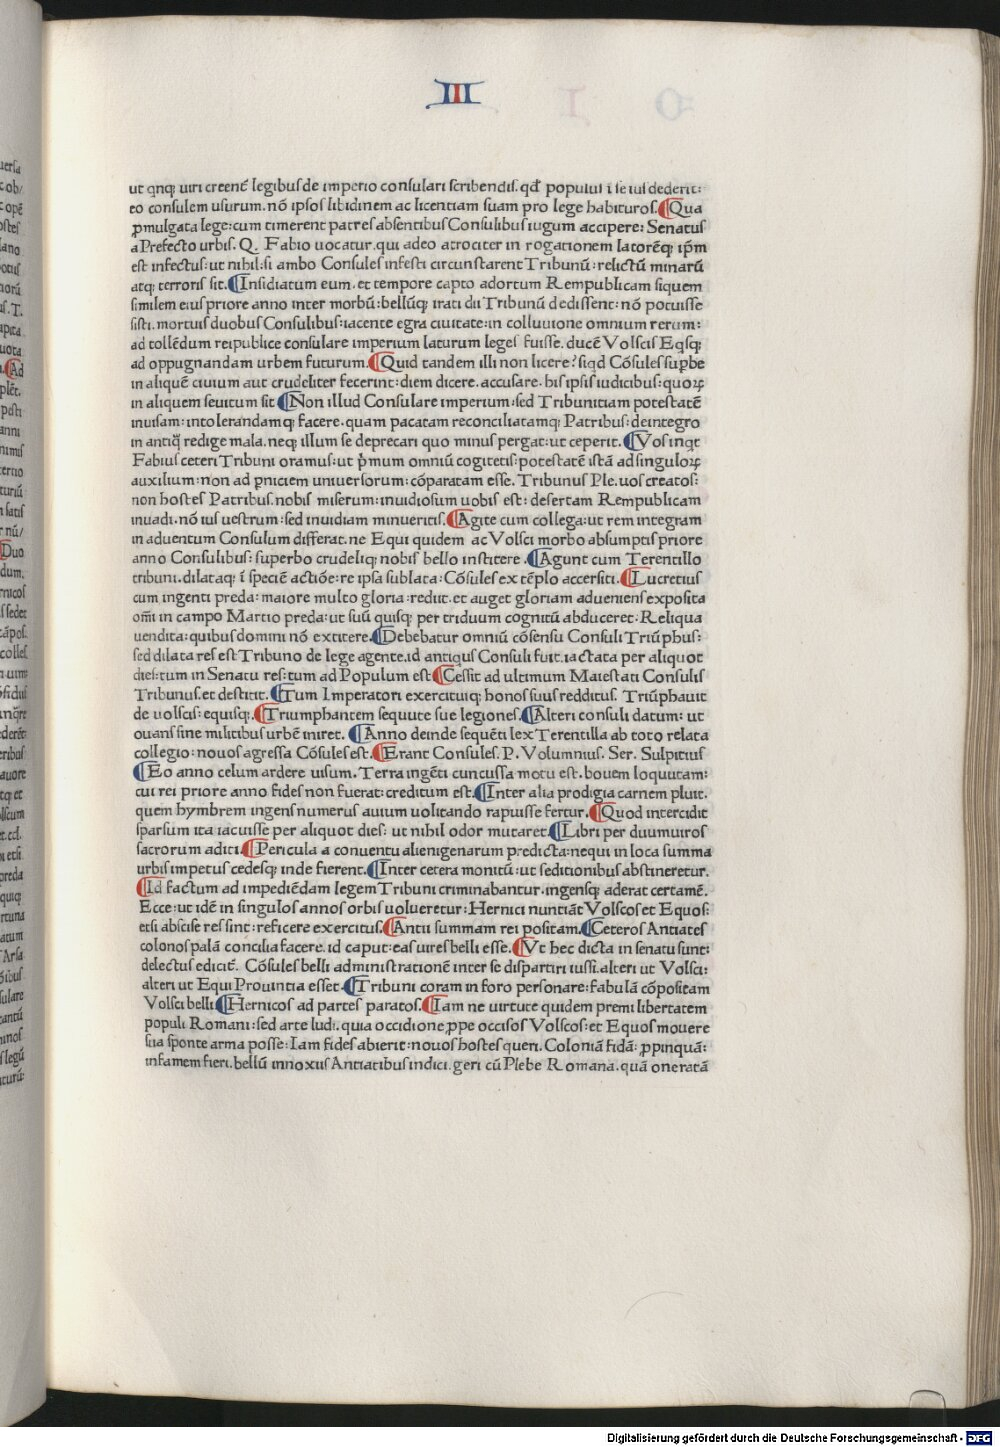 III
ut qnqꝫ uiri creent̄ legibus de imperio consulari scribendis. qđ populus ī se ius dederit:
eo consulem usurum. nō ipsos libidinem ac licentiam suam pro lege habituros. ¶Qua
ꝓmulgata lege: cum timerent patres absentibus Consulibus iugum accipere: Senatus
a Prefecto urbis. Q. Fabio uocatur. qui adeo atrociter in rogationem latorēqꝫ ip̄m
est infectus: ut nihil: si ambo Consules infesti circunstarent Tribunū: relictū minarū
atqꝫ terroris sit. ¶Insidiatum eum. et tempore capto adortum Rempublicam siquem
similem eius priore anno inter morbū: bellūqꝫ irati dii Tribunū dedissent: nō potuisse
sisti. mortuis duobus Consulibus: iacente egra ciuitate: in colluuione omnium rerum:
ad tollēdum reipublice consulare imperium laturum leges fuisse. ducē Volscis Eqsqꝫ
ad oppugnandam urbem futurum. ¶Quid tandem illi non licere? siqd Cōsules suꝑbe
in aliquē ciuium aut crudeliter fecerint: diem dicere. accusare. his ipsis iudicibus: quoꝝ
in aliquem seuitum sit ¶Non illud Consulare imperium: sed Tribunitiam potestatē
inuisam: intolerandamqꝫ facere. quam pacatam reconciliatamqꝫ Patribus: deintegro
in antiqꝫ redige mala. neqꝫ illum se deprecari quo minus pergat: ut ceperit. ¶Vos inqt
Fabius ceteri Tribuni oramus: ut p̄mum omniū cogitetis: potestatē istā ad singuloꝝ
auxilium: non ad ꝑniciem uniuersorum: cōparatam esse. Tribunus Ple. uos creatos:
non hostes Patribus. nobis miserum: inuidiosum uobis est: desertam Rempublicam
inuadi. nō ius uestrum: sed inuidiam minueritis. ¶Agite cum collega: ut rem integram
in aduentum Consulum differat. ne Equi quidem ac Volsci morbo absumptis priore
anno Consulibus: superbo crudeliqꝫ nobis bello institere. ¶Agunt cum Terentillo
tribuni. dilataqꝫ ī speciē actiōe: re ipsa sublata: Cōsules ex tēplo accersiti. ¶Lucretius
cum ingenti preda: maiore multo gloria: rediit. et auget gloriam adueniens exposita
om̄i in campo Martio preda: ut suū quisqꝫ per triduum cognitū abduceret. Reliqua
uendita: quibus domini nō extitere. ¶Debebatur omniū cōsensu Consuli Triūphus:
sed dilata res est Tribuno de lege agente. id antiqus Consuli fuit. iactata per aliquot
dies: tum in Senatu res: tum ad Populum est ¶Cessit ad ultimum Maiestati Consulis
Tribunus. et destitit. ¶Tum Imperatori exercituiqꝫ honos suus redditus. Triūphauit
de uolscis: equisqꝫ. ¶Triumphantem sequute sue legiones. ¶Alteri consuli datum: ut
ouans sine militibus urbē iniret. ¶Anno deinde sequēti lex Terentilla ab toto relata
collegio: nouos agressa Cōsules est. ¶Erant Consules. P. Volumnius. Ser. Sulpitius
¶Eo anno celum ardere uisum. Terra ingēti cuncussa motu est. bouem loquutam:
cui rei priore anno fides non fuerat: creditum est. ¶Inter alia prodigia carnem pluit.
quem hymbrem ingens numerus auium uolitando rapuisse fertur. ¶Quod intercidit
sparsum ita iacuisse per aliquot dies: ut nihil odor mutaret. ¶Libri per duumuiros
sacrorum aditi. ¶Pericula a conuentu alienigenarum predicta: nequi in loca summa
urbis impetus cedesqꝫ inde fierent. ¶Inter cetera monitū: ut seditionibus abstineretur.
¶Id factum ad impediēdam legem Tribuni criminabantur. ingensqꝫ aderat certamē.
Ecce: ut idē in singulos annos orbis uolueretur: Hernici nuntiāt Volscos et Equos:
etsi abscise res sint: reficere exercitus. ¶Antii summam rei positam. ¶Ceteros Antiates
colonos palā concilia facere. id caput: eas uires belli esse. ¶Vt hec dicta in senatu sunt:
delectus edicit̄. Cōsules belli administrationē inter se dispartiri iussi. alteri ut Volsci:
alteri ut Equi Prouintia esset. ¶Tribuni coram in foro personare: fabulā cōpositam
Volsci belli ¶Hernicos ad partes paratos. ¶Iam ne uirtute quidem premi libertatem
populi Romani: sed arte ludi. quia occidione ꝓpe occisos Volscos: et Equos mouere
sua sponte arma posse: Iam fides abierit: nouos hostes queri. Coloniā fidā: ꝓpinquā:
infamem fieri. bellū innoxiis Antiatibus indici. geri cū Plebe Romana. quā oneratā
Digitalisierung gefördert durch die Deutsche Forschungsgemeinschaft - DFG